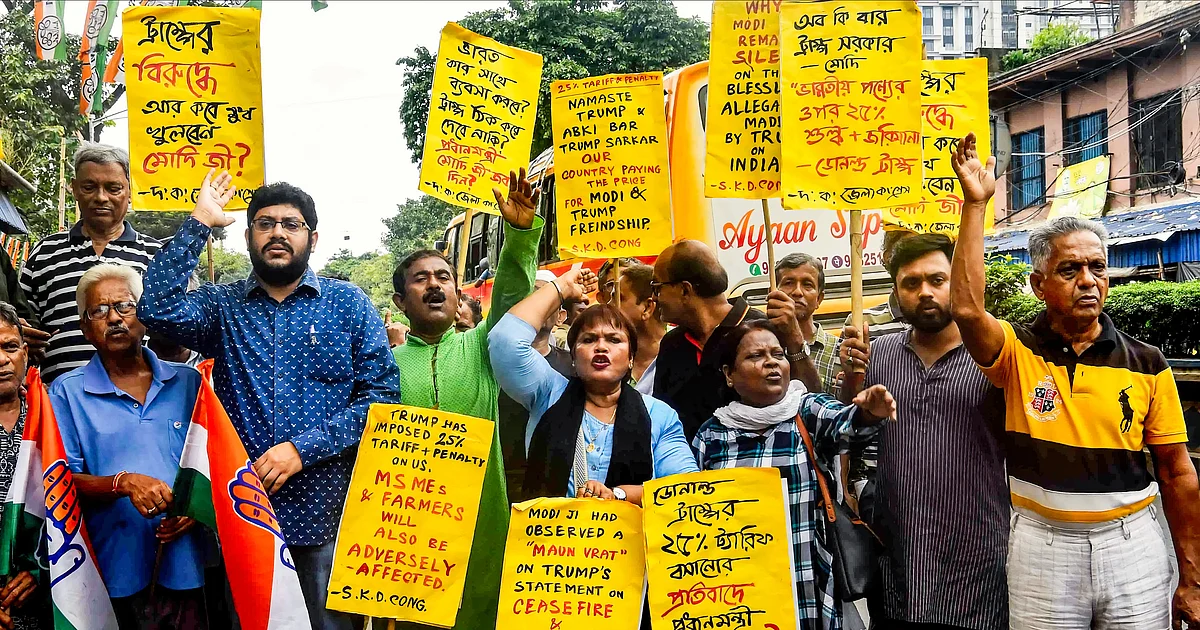 ট্রাম্পের
বিরুদ্ধে
আর কবে মুখ
খুলবেন
মোদি জী?
ভারত
কার সাথে
ব্যবসা করবে?
ট্রাম্প ঠিক করে
দেবে নাকি?
প্রধানমন্ত্রী
মোদি জী জবাব
দিন?
25% TARIFF & PENALTY
NAMASTE
TRUMP &
ABKI BAR
TRUMP SARKAR
OUR
COUNTRY PAYING
THE PRICE
FOR MODI &
TRUMP
FREINDSHIP.
-S.K.D. CONG
WHY
MODI
REMA
SILE
ON TH
BLESSU
ALLEGA
MADE
BY TRU
ON
INDIA
-S.K.D. CON
অব কি বার
ট্রাম্প সরকার
- মোদি
"ভারতীয় পণ্যের
ওপর ২৫%
শুল্ক + জরিমানা
- ডোনাল্ড ট্রাম্প
-দ: ক: জেলা কংগ্রেস
Ayaan
TRUMP HAS
IMPOSED 25%
TARIFF + PENALTY
ON US.
MSMEs
& FARMERS
WILL
ALSO BE
ADVERSELY
-AFFECTED.
-S.K.D CONG.
MODI JI HAD
OBSERVED A
"MAUN VRAT"
ON TRUMP'S
STATEMENT ON
CEASEFIRE
&
ডোনাল্ড
ট্রাম্পের
২৫% ট্যারিফ
বসানোর
প্রতিবাদে
প্রধানমন্ত্রী